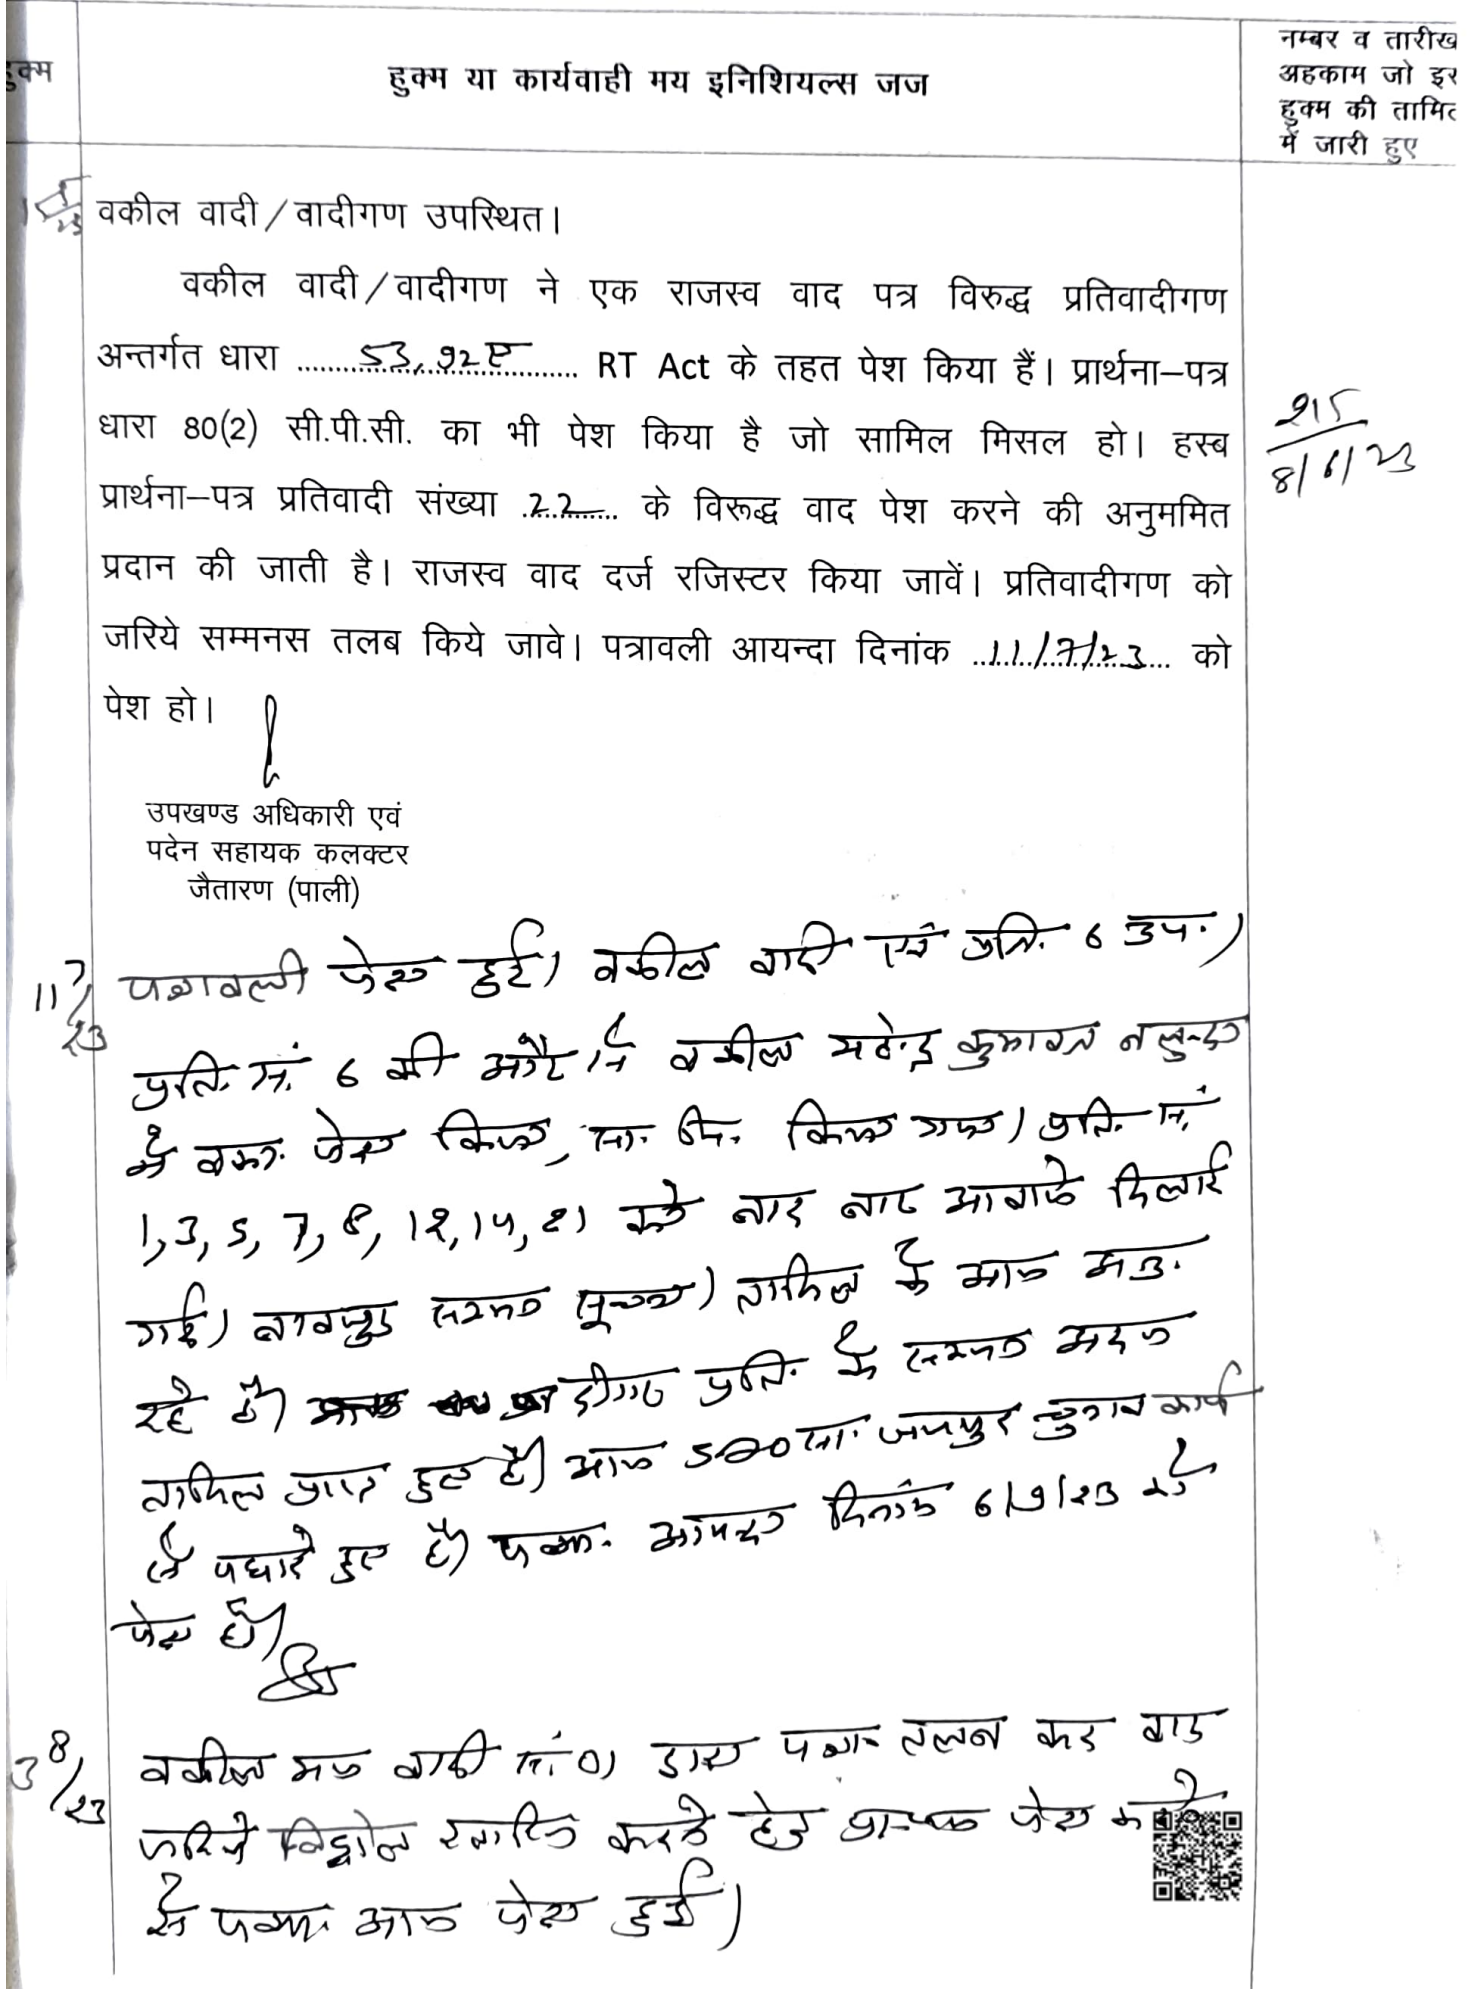 हुक्म
हुक्म या कार्यवाही मय इनिशियल्स जज
नम्बर व तारीख
अहकाम जो इस
हुक्म की तामिल
में जारी हुए
वकील वादी/वादीगण उपस्थित।
वकील वादी/वादीगण ने एक राजस्व वाद पत्र विरुद्ध प्रतिवादीगण
अन्तर्गत धारा ......53, 92ए...... RT Act के तहत पेश किया हैं। प्रार्थना–पत्र
धारा 80(2) सी.पी.सी. का भी पेश किया है जो सामिल मिसल हो। हस्ब
215
8/6/23
प्रार्थना–पत्र प्रतिवादी संख्या ..22.. के विरूद्ध वाद पेश करने की अनुममित
प्रदान की जाती है। राजस्व वाद दर्ज रजिस्टर किया जावें। प्रतिवादीगण को
जरिये सम्मनस तलब किये जावे। पत्रावली आयन्दा दिनांक ..11/7/23.. को
पेश हो।
उपखण्ड अधिकारी एवं
पदेन सहायक कलक्टर
जैतारण (पाली)
11/7/23 पत्रावली पेश हुई। वकील वादी एवं प्रति. 6 उप.।
प्रति. सं. 6 की ओर से वकील कुमावत
ने वका. पेश किया, सा. मि. किया गया। प्रति. सं.
1, 3, 5, 7, 8, 12, 14, 21 को बार बार आवाजे दिलाई
गई। बावजुद सम्मन सूचना। तामिल के आज
रहे है। प्रति. के सम्मन अदम
तामिल प्राप्त हुए है। आज सा. जयपुर चुनाव कार्य
से पधारे हुए है। पत्रा. आयन्दा दिनांक 6/9/23 को
पेश हो।
3/8/23 वकील मय वादी सं. 01 द्वारा पत्रा. तलब कर वाद
जरिये विड्रोल खारिज करने हेतु प्रा. पत्र पेश करने
से पत्रा. आज पेश हुई।